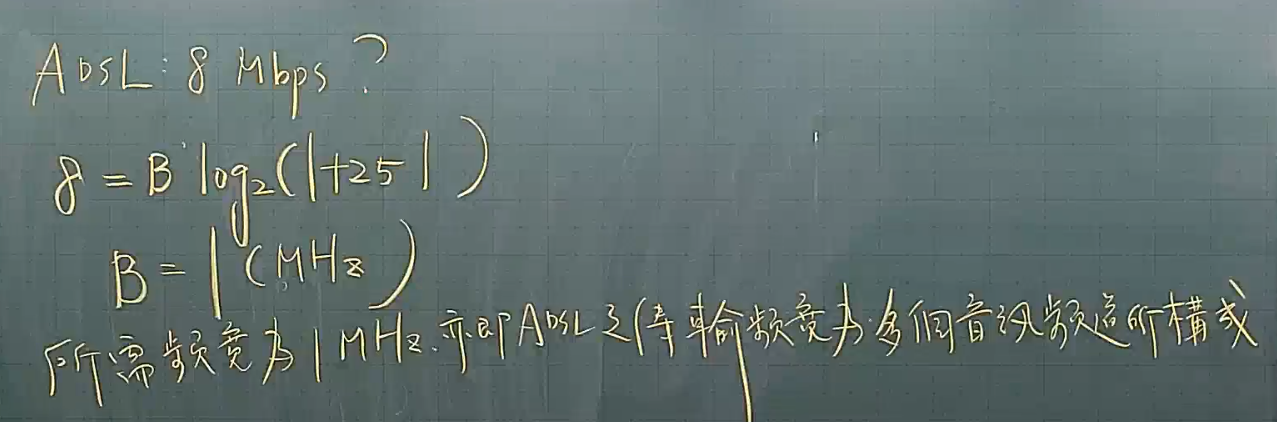 ADSL: 8 Mbps ?
8 = B log₂(1+251)
B = 1 (MHz)
所需頻寬為1MHz.亦即ADSL之傳輸頻寬為多個音訊頻道所構成